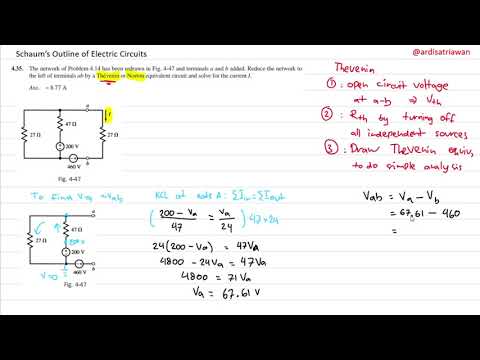 Schaum's Outline of Electric Circuits
@ardisatriawan
4.35. The network of Problem 4.14 has been redrawn in Fig. 4-47 and terminals a and b added. Reduce the network to
the left of terminals ab by a Thévenin or Norton equivalent circuit and solve for the current I.
Ans. − 8.77 A
a
I
47 Ω
27 Ω
27 Ω
200 V
460 V
b
Fig. 4-47
Thevenin
①: open circuit voltage
at a-b ⇒ Vth
②: Rth by turning off
all independent sources
③: Draw Thevenin equiv,
to do simple analysis
To find Vth = Vab,
a
47 Ω
27 Ω
200 V
V=0
460 V
b
Fig. 4-47
KCL at node A: ΣIin = ΣIout
(200 − Va / 47 = Va / 24) 47×24
24(200 − Va) = 47Va
4800 − 24Va = 47Va
4800 = 71Va
Va = 67.61 V
Vab = Va − Vb
= 67.61 − 460
=